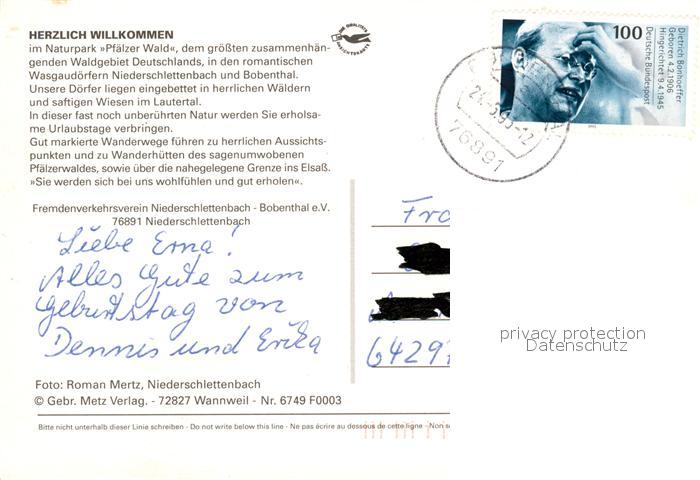 HERZLICH WILLKOMMEN
im Naturpark »Pfälzer Wald«, dem größten zusammenhän-
genden Waldgebiet Deutschlands, in den romantischen
Wasgaudörfern Niederschlettenbach und Bobenthal.
Unsere Dörfer liegen eingebettet in herrlichen Wäldern
und saftigen Wiesen im Lautertal.
In dieser fast noch unberührten Natur werden Sie erholsa-
me Urlaubstage verbringen.
Gut markierte Wanderwege führen zu herrlichen Aussichts-
punkten und zu Wanderhütten des sagenumwobenen
Pfälzerwaldes, sowie über die nahegelegene Grenze ins Elsaß.
»Sie werden sich bei uns wohlfühlen und gut erholen«.
Fremdenverkehrsverein Niederschlettenbach - Bobenthal e.V.
76891 Niederschlettenbach
Liebe Erna!
Alles Gute zum
Geburtstag von
Dennis und Erika
Foto: Roman Mertz, Niederschlettenbach
© Gebr. Metz Verlag. - 72827 Wannweil - Nr. 6749 F0003
Bitte nicht unterhalb dieser Linie schreiben - Do not write below this line - Ne pas écrire au dessous de cette ligne - Non s
100
Dietrich Bonhoeffer
Geboren 4.2.1906
Hingerichtet 9.4.1945
Deutsche Bundespost
1995
76891
Fra
6429
privacy protection
Datenschutz